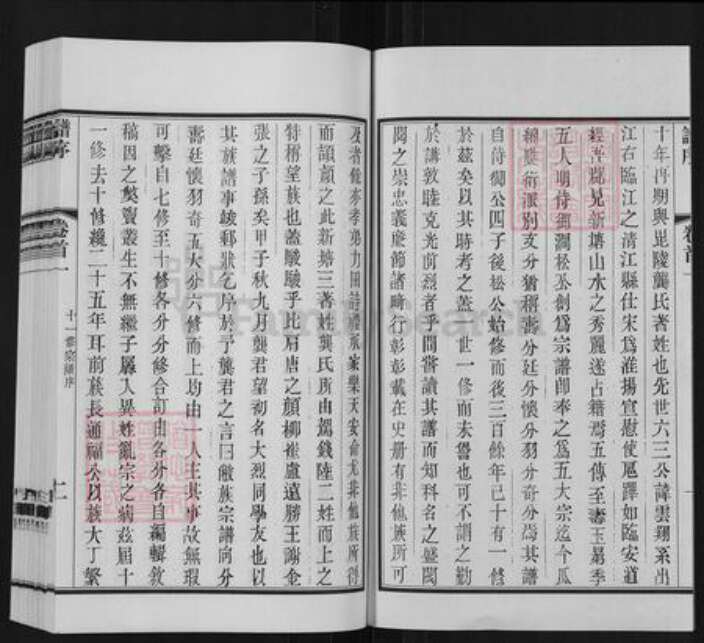 十年再期與毘陵龔氏著姓也先世六三公諱雲翔系出
江右臨江之清江縣仕宋爲淮揚宣慰使扈蹕如臨安道
經吾郡見新塘山水之秀麗遂占籍焉五傳至壽玉昴季
五人明侍御澗松公創爲宗譜卽奉之爲五大宗迄今瓜
緜椒衍派別支分猶稱壽分廷分懷分羽分奇分爲其譜
自侍御公四子後松公始修而後三百餘年已十有一修
於茲矣以其時考之蓋一世一修而未嘗也可不謂之勤
於講敦睦克光前烈者乎問嘗讀其譜而知科名之盛閥
閱之崇忠義廉節諸畸行彰彰載在史册有非他族所可
及者餘亦孝弟力田詩禮承家樂天安命尤非他族所得
而頡頏之此新塘三著姓龔氏所由駕錢陸二姓而上之
特稱望族也蓋駸駸乎比肩唐之顔柳崔盧遠勝王謝金
張之子孫矣甲子秋九月龔君望初名大烈同學友也以
其族譜事竣郵狀乞序於予龔君之言曰敝族宗譜向分
壽廷懷羽奇五大分六修而上均由一人主其事故無瑕
可擊自七修至十修各分分修合訂由各分各自編輯敘
稿因之獘竇叢生不無繼子屬入異姓亂宗之病茲屆十
一修去十修纔二十五年耳前族長通福公以族大丁繁
譜序
卷首一
十一常宗陽序
十二
譜序
卷首一
FamilySearch